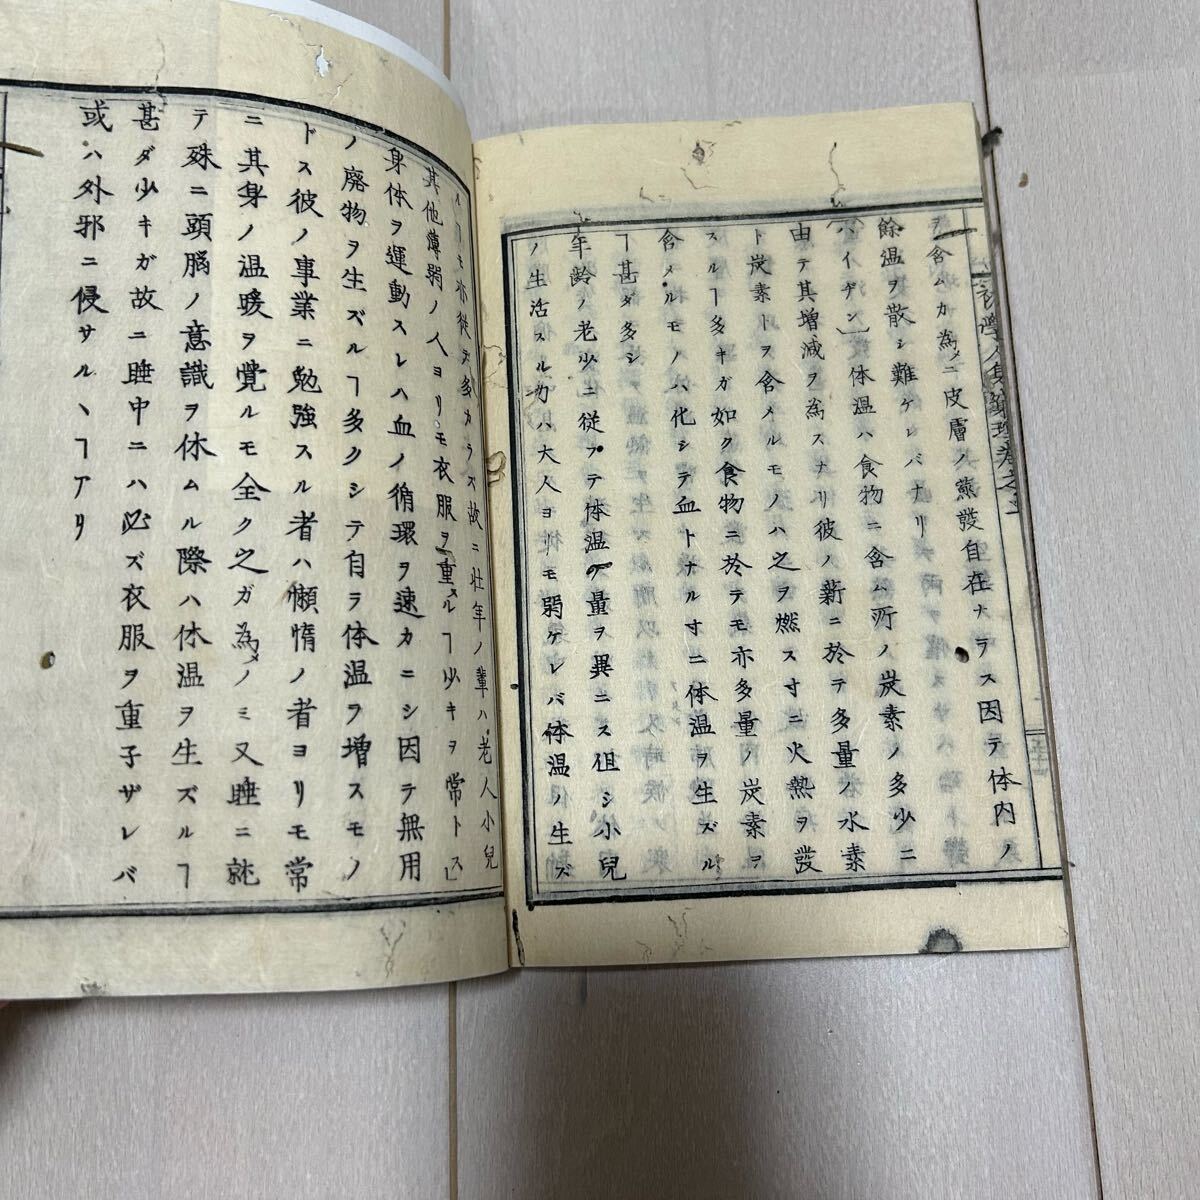 ヲ含ムカ為メニ皮膚ノ蒸發自在ナラス因テ体内ノ
餘温ヲ散シ難ケレバナリ
ハイデン」体温ハ食物ニ含ム所ノ炭素ノ多少ニ
由テ其増減ヲ為スナリ彼ノ薪ニ於テ多量ノ水素
ト炭素トヲ含メルモノハ之ヲ燃ス寸ニ火熱ヲ發
スルヿ多キガ如ク食物ニ於テモ亦多量ノ炭素ヲ
含メルモノハ化シテ血トナル寸ニ体温ヲ生ズル
ヿ甚ダ多シ
年齢ノ老少ニ従フテ体温ノ量ヲ異ニス但シ小兒
ノ生活スル力ハ大人ヨリモ弱ケレバ体温ノ生ズ
ルヿモ亦従テ多カラス故ニ壮年ノ輩ハ老人小兒
其他薄弱ノ人ヨリモ衣服ヲ重ヌルヿ少キヲ常トス」
身体ヲ運動スレハ血ノ循環ヲ速カニシ因テ無用
ノ廢物ヲ生ズルヿ多クシテ自ラ体温ヲ増スモノ
ドス彼ノ事業ニ勉強スル者ハ懶惰ノ者ヨリモ常
ニ其身ノ温暖ヲ覺ルモ全ク之ガ為メノミ又睡ニ就
テ殊ニ頭脳ノ意識ヲ休ムル際ハ体温ヲ生ズルヿ
甚ダ少キガ故ニ睡中ニハ必ズ衣服ヲ重子ザレバ
或ハ外邪ニ侵サルヽヿアリ